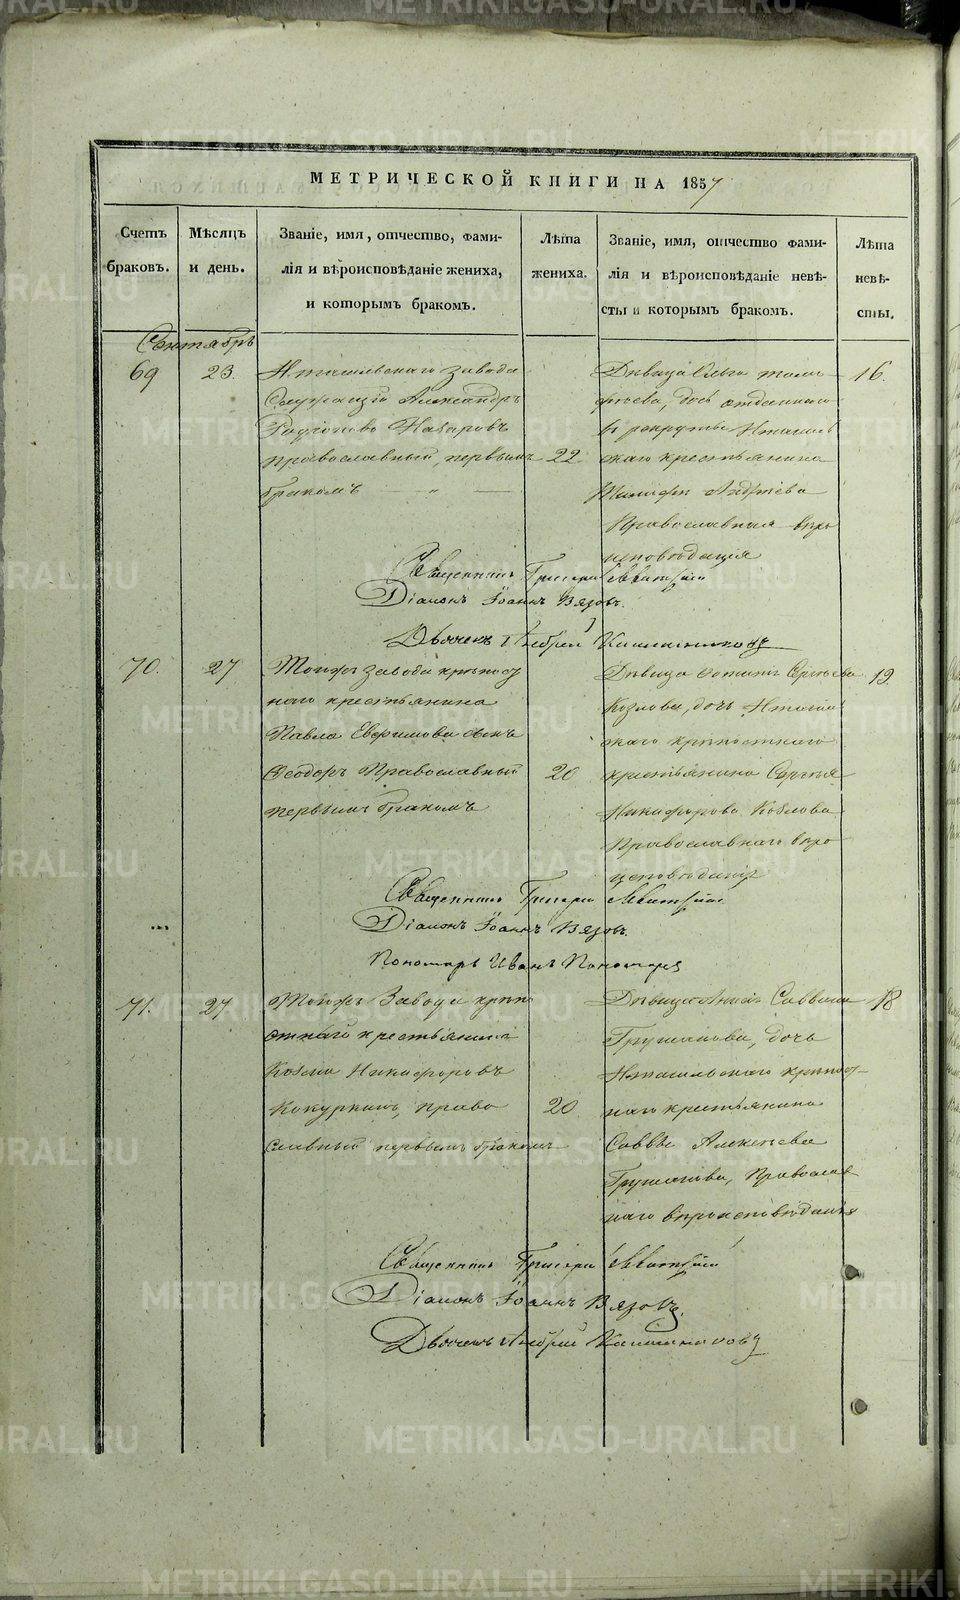 МЕТРИЧЕСКОЙ КНИГИ НА 1857
Счетъ браковъ.
Мѣсяцъ и день.
Званіе, имя, отчество, фами-
лія и вѣроисповѣданіе жениха,
и которымъ бракомъ.
Лѣта жениха.
Званіе, имя, отчество фами-
лія и вѣроисповѣданіе невѣ-
сты и которымъ бракомъ.
Лѣта невѣ-
сты.
Сентябрь
69
23.
Нтагильскаго завода
Служащій Александръ
Назаровъ
православный, первымъ
бракомъ — „ —
22
Дѣвица Ольга
дочь отданнаго
въ рекруты Нтагиль
скаго крестьянина
Андреева
Православнаго вѣро
исповѣданія
16.
Священникъ Григорій Левитскій
Діаконъ Іоаннъ Вязовъ.
Дьячекъ Андрей Калашниковъ
70.
27
Тогожъ завода крѣпост
наго крестьянина
Павла Ефимова сынъ
Ѳеодоръ Православный
первымъ бракомъ
20
Дѣвица Сергѣева
Козлова, дочь Нтагиль
скаго крѣпостнаго
крестьянина Сергѣя
Никифорова Козлова
Православнаго вѣро
исповѣданія
19.
Священникъ Григорій Левитскій
Діаконъ Іоаннъ Вязовъ.
Пономарь Иванъ Пономаревъ
71.
27
Тогожъ Завода крѣпо
стный крестьянинъ
Козма Никифоровъ
Кокуркинъ, право
славный первымъ бракомъ
20
Дѣвица Анна Саввина
Трушкова, дочь
Нтагильскаго крѣпост-
наго крестьянина
Саввы Алексѣева
Трушкова, Православ
наго вѣроисповѣданія
18
Священникъ Григорій Левитскій
Діаконъ Іоаннъ Вязовъ.
Дьячекъ Андрей Калашниковъ
METRIKI.GASO-URAL.RU